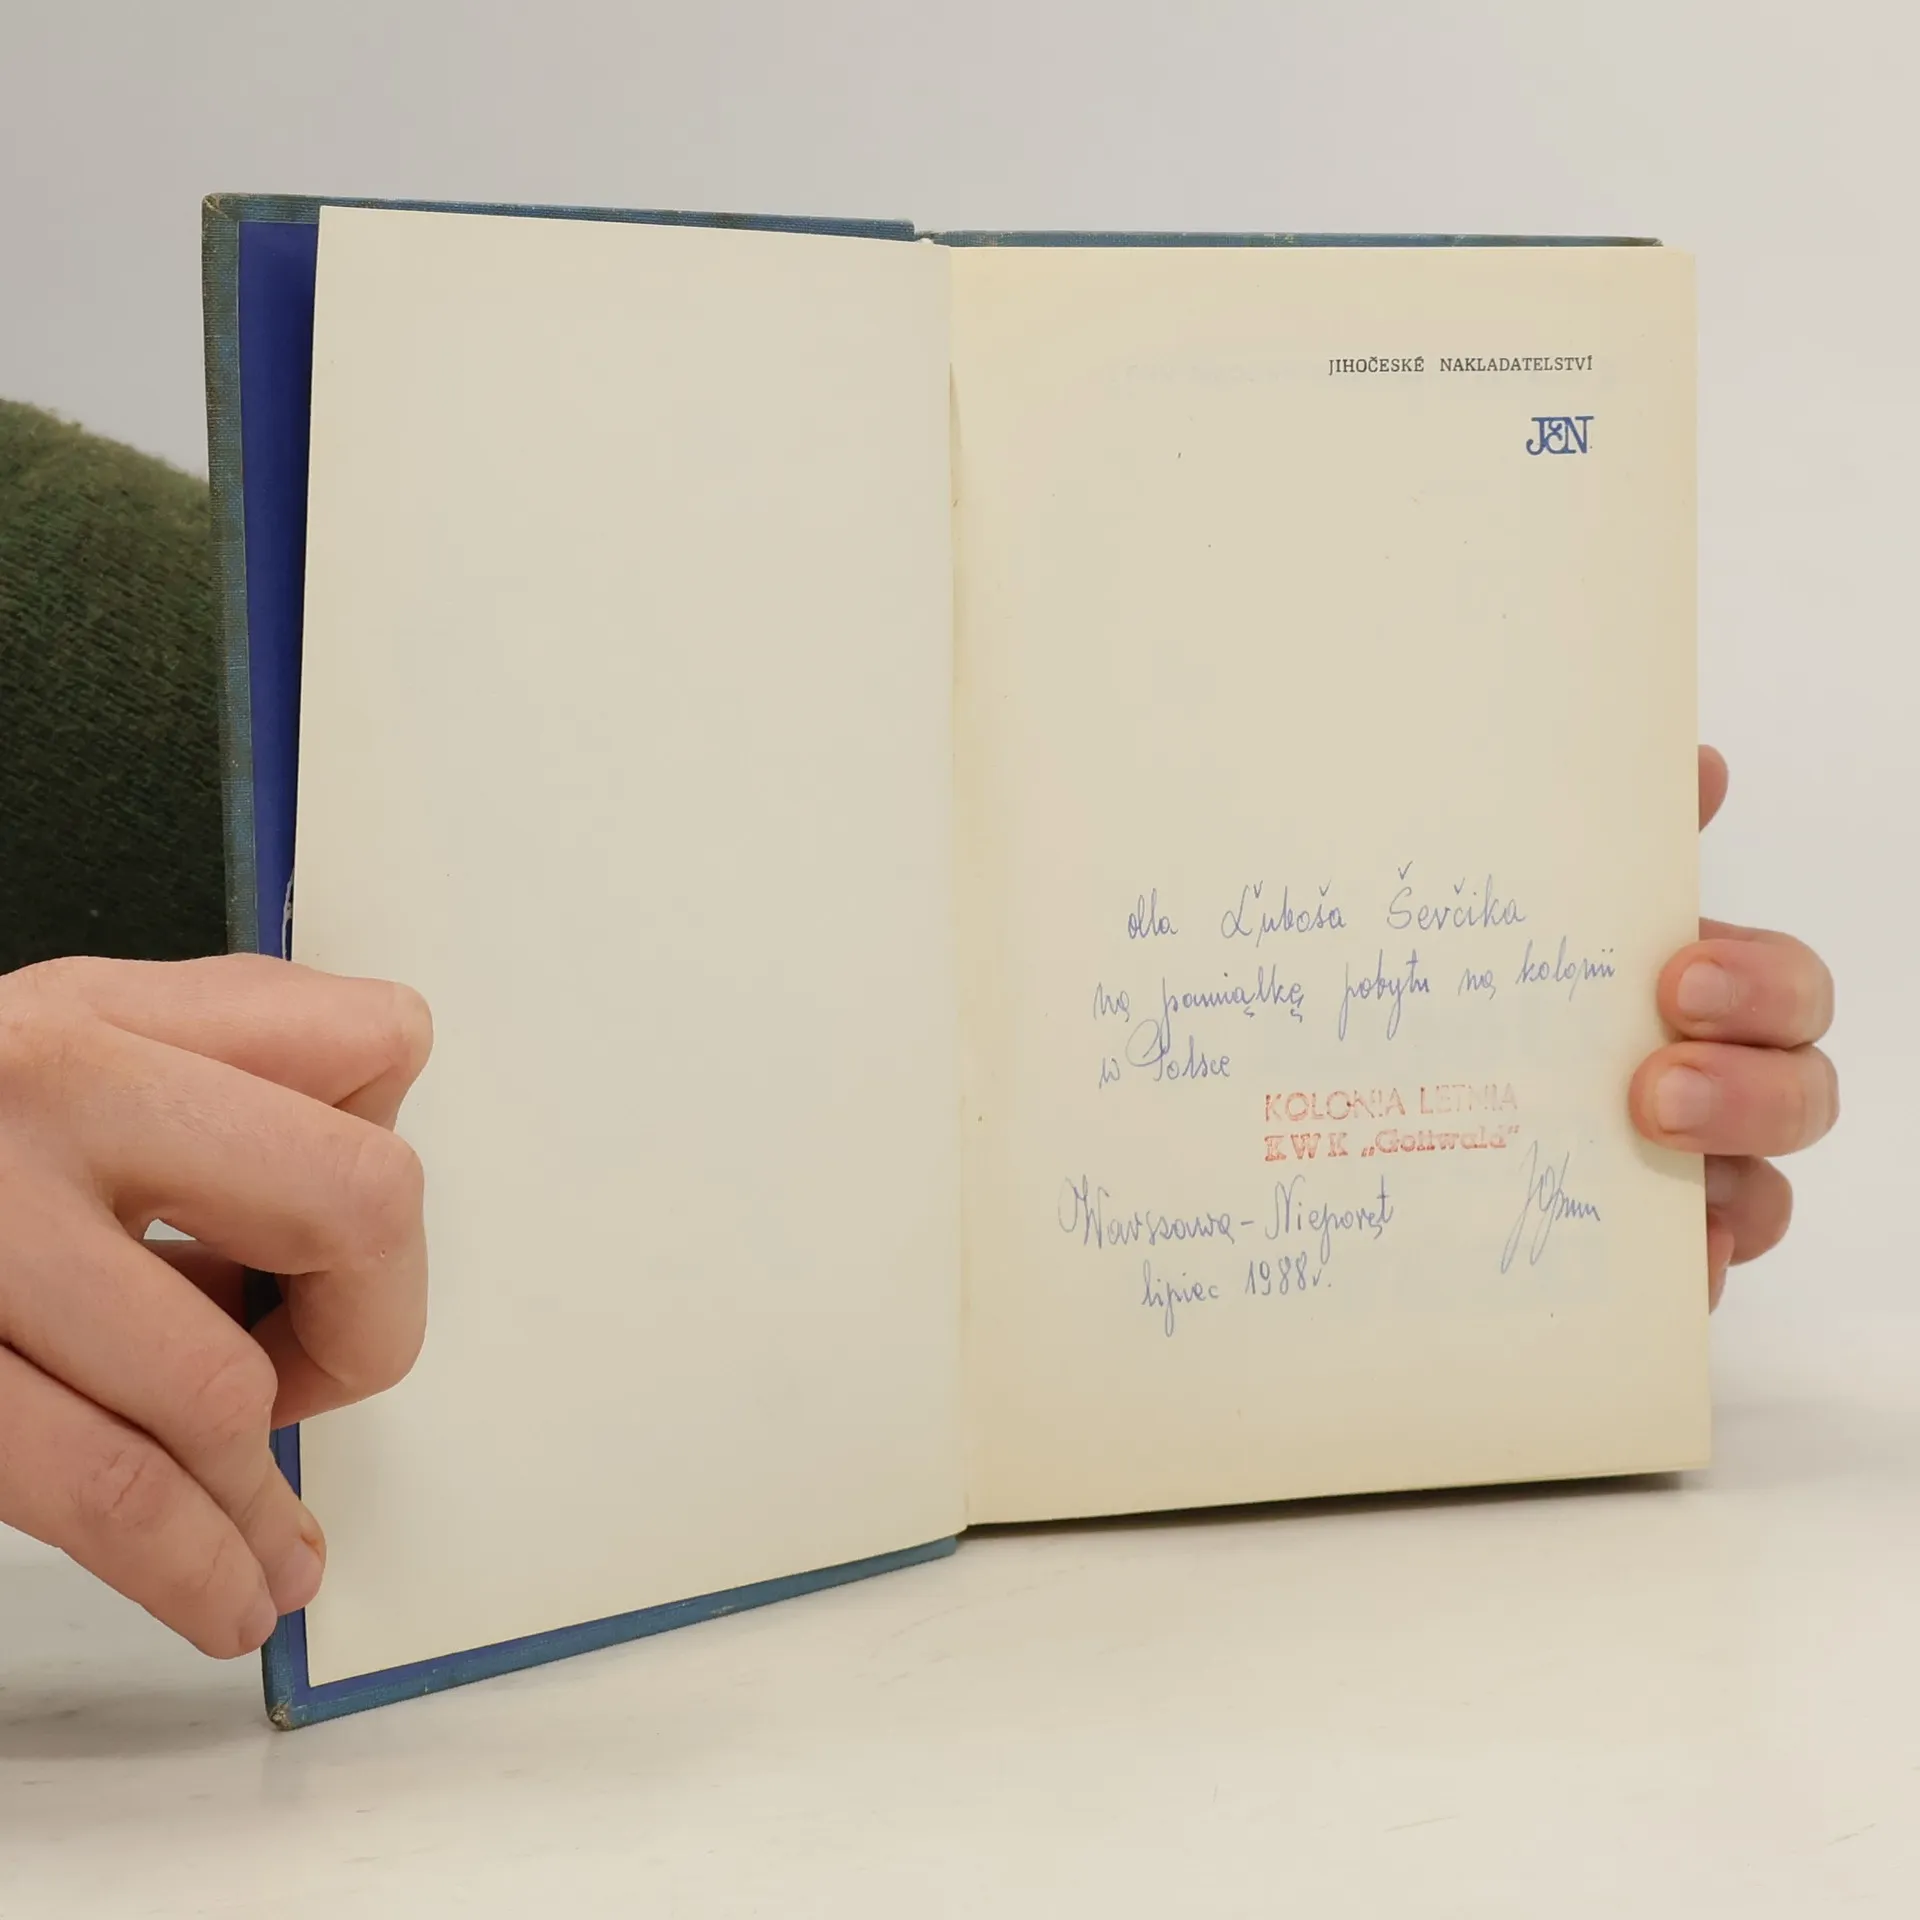 JIHOČESKÉ NAKLADATELSTVÍ
JčN
dla Ľuboša Ševčika
na pamiątkę pobytu na kolonii
w Polsce
KOLONIA LETNIA
KWK „Gottwald"
Warszawa - Nieporęt
lipiec 1988r.